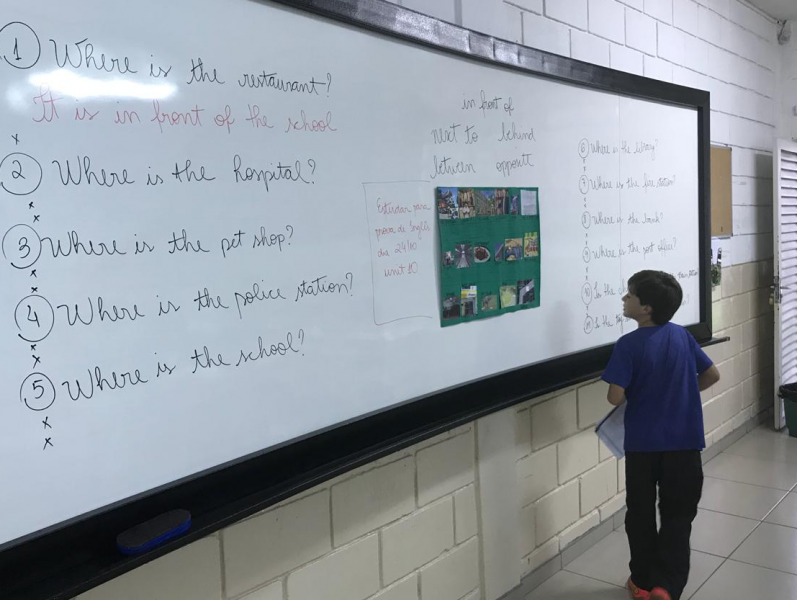 1 Where is the restaurant?
It is in front of the school
2 Where is the hospital?
3 Where is the pet shop?
4 Where is the police station?
5 Where is the school?
in front of
next to behind
between opposite
Estudar para
prova de Inglês
dia 24/10
unit 10
6 Where is the library?
7 Where is the fire station?
8 Where is the bank?
9 Where is the post office?
10 Is the
11 Is the